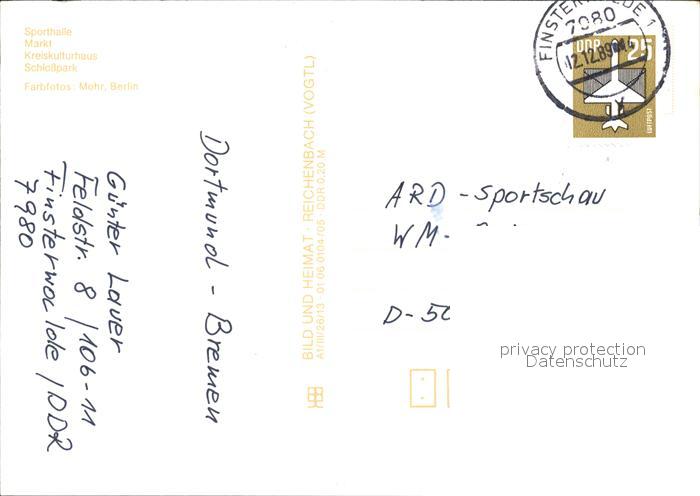 Sporthalle
Markt
Kreiskulturhaus
Schloßpark
Farbfotos: Mohr, Berlin
FINSTERWALDE 1
7980
12.12.89
DDR 25
LUFTPOST
Dortmund - Bremen
Günter Lauer
Feldstr. 8 / 106-11
Finsterwalde / DDR
7980
BILD UND HEIMAT · REICHENBACH (VOGTL)
A1/III/26/13 01 06 0104/05 DDR 0,20 M
ARD - Sportschau
WM- " .
D-50
privacy protection
Datenschutz